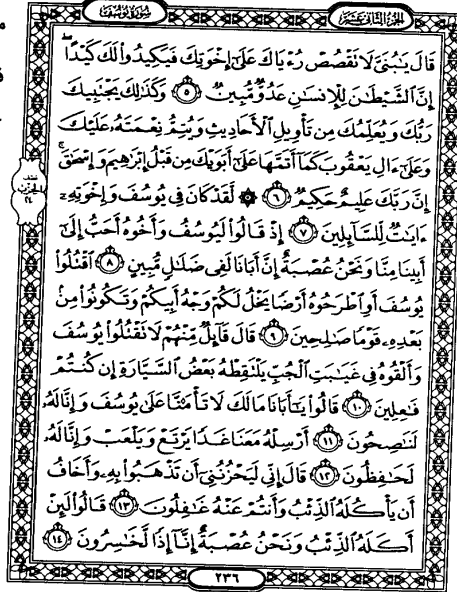 سورة يوسف الجزء الثاني عشر
قَالَ يَٰبُنَيَّ لَا تَقْصُصْ رُءْيَاكَ عَلَىٰٓ إِخْوَتِكَ فَيَكِيدُوا۟ لَكَ كَيْدًا ۖ
إِنَّ ٱلشَّيْطَٰنَ لِلْإِنسَٰنِ عَدُوٌّ مُّبِينٌ ٥ وَكَذَٰلِكَ يَجْتَبِيكَ
رَبُّكَ وَيُعَلِّمُكَ مِن تَأْوِيلِ ٱلْأَحَادِيثِ وَيُتِمُّ نِعْمَتَهُۥ عَلَيْكَ
وَعَلَىٰٓ ءَالِ يَعْقُوبَ كَمَآ أَتَمَّهَا عَلَىٰٓ أَبَوَيْكَ مِن قَبْلُ إِبْرَٰهِيمَ وَإِسْحَٰقَ ۚ
إِنَّ رَبَّكَ عَلِيمٌ حَكِيمٌ ٦ ۞ لَّقَدْ كَانَ فِى يُوسُفَ وَإِخْوَتِهِۦٓ
ءَايَٰتٌ لِّلسَّآئِلِينَ ٧ إِذْ قَالُوا۟ لَيُوسُفُ وَأَخُوهُ أَحَبُّ إِلَىٰٓ
أَبِينَا مِنَّا وَنَحْنُ عُصْبَةٌ إِنَّ أَبَانَا لَفِى ضَلَٰلٍ مُّبِينٍ ٨ ٱقْتُلُوا۟
يُوسُفَ أَوِ ٱطْرَحُوهُ أَرْضًا يَخْلُ لَكُمْ وَجْهُ أَبِيكُمْ وَتَكُونُوا۟ مِنۢ
بَعْدِهِۦ قَوْمًا صَٰلِحِينَ ٩ قَالَ قَآئِلٌ مِّنْهُمْ لَا تَقْتُلُوا۟ يُوسُفَ
وَأَلْقُوهُ فِى غَيَٰبَتِ ٱلْجُبِّ يَلْتَقِطْهُ بَعْضُ ٱلسَّيَّارَةِ إِن كُنتُمْ
فَٰعِلِينَ ١٠ قَالُوا۟ يَٰٓأَبَانَا مَا لَكَ لَا تَأْمَ۫نَّا عَلَىٰ يُوسُفَ وَإِنَّا لَهُۥ
لَنَٰصِحُونَ ١١ أَرْسِلْهُ مَعَنَا غَدًا يَرْتَعْ وَيَلْعَبْ وَإِنَّا لَهُۥ
لَحَٰفِظُونَ ١٢ قَالَ إِنِّى لَيَحْزُنُنِىٓ أَن تَذْهَبُوا۟ بِهِۦ وَأَخَافُ
أَن يَأْكُلَهُ ٱلذِّئْبُ وَأَنتُمْ عَنْهُ غَٰفِلُونَ ١٣ قَالُوا۟ لَئِنْ
أَكَلَهُ ٱلذِّئْبُ وَنَحْنُ عُصْبَةٌ إِنَّآ إِذًا لَّخَٰسِرُونَ ١٤
٢٣٦